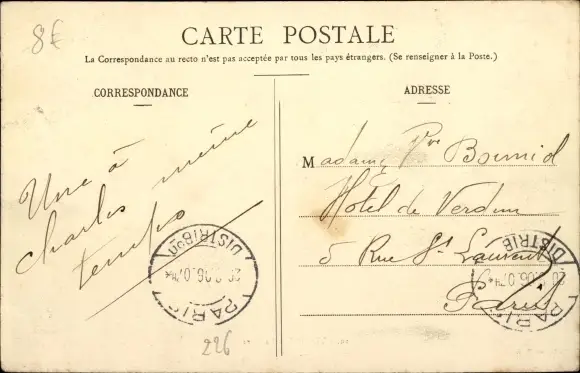 8€
CARTE POSTALE
La Correspondance au recto n'est pas acceptée par tous les pays étrangers. (Se renseigner à la Poste.)
CORRESPONDANCE
Une à
Charles même
temps
ADRESSE
Madame Vve
Hôtel de Verdun
5 Rue St Laurent
Paris
PARIS
DISTRIBon
PARIS
DISTRIB
226